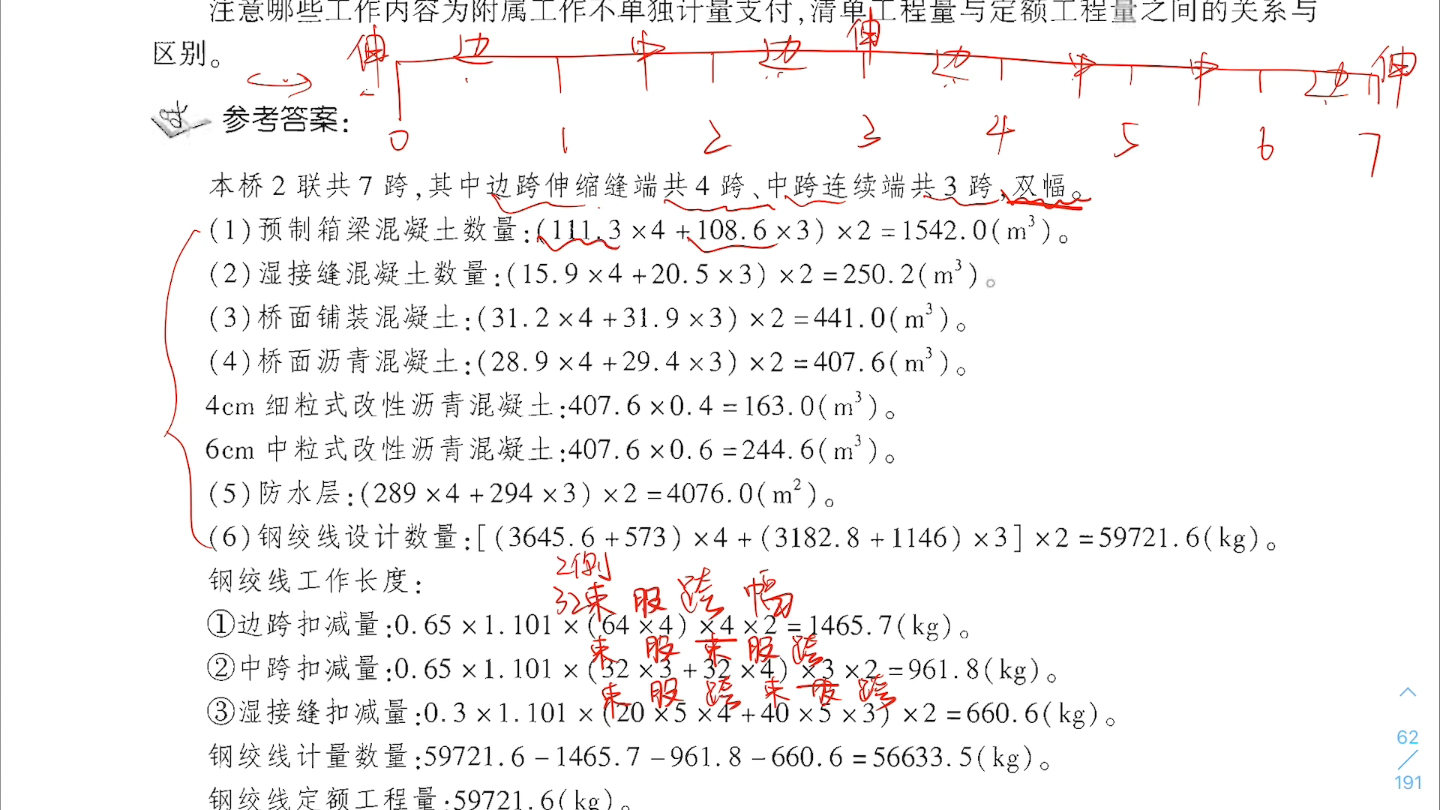 注意哪些工作内容为附属工作不单独计量支付,清单工程量与定额工程量之间的关系与
区别。
伸 边 中 边 伸 边 中 中 边 伸
0 1 2 3 4 5 6 7
参考答案:
本桥2联共7跨,其中边跨伸缩缝端共4跨、中跨连续端共3跨,双幅。
(1)预制箱梁混凝土数量:(111.3×4+108.6×3)×2=1542.0(m³)。
(2)湿接缝混凝土数量:(15.9×4+20.5×3)×2=250.2(m³)。
(3)桥面铺装混凝土:(31.2×4+31.9×3)×2=441.0(m³)。
(4)桥面沥青混凝土:(28.9×4+29.4×3)×2=407.6(m³)。
4cm细粒式改性沥青混凝土:407.6×0.4=163.0(m³)。
6cm中粒式改性沥青混凝土:407.6×0.6=244.6(m³)。
(5)防水层:(289×4+294×3)×2=4076.0(m²)。
(6)钢绞线设计数量:[(3645.6+573)×4+(3182.8+1146)×3]×2=59721.6(kg)。
2侧
钢绞线工作长度:
32束 股 跨 幅
①边跨扣减量:0.65×1.101×(64×4)×4×2=1465.7(kg)。
束 股 束 股 跨
②中跨扣减量:0.65×1.101×(32×3+32×4)×3×2=961.8(kg)。
束 股 跨 束 股 跨
③湿接缝扣减量:0.3×1.101×(20×5×4+40×5×3)×2=660.6(kg)。
钢绞线计量数量:59721.6-1465.7-961.8-660.6=56633.5(kg)。
钢绞线定额工程量:59721.6(kg)。
62
191